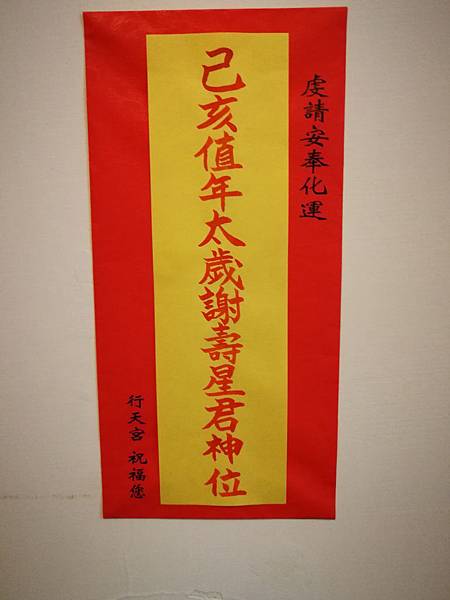 虔請安奉化運
己亥值年太歲謝壽星君神位
行天宮 祝福您